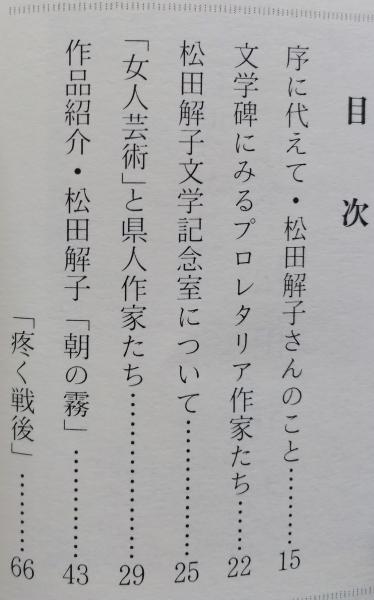 目次
序に代えて・松田解子さんのこと…………15
文学碑にみるプロレタリア作家たち……22
松田解子文学記念室について……………25
「女人芸術」と県人作家たち………………29
作品紹介・松田解子「朝の霧」…………43
「疼く戦後」…………66